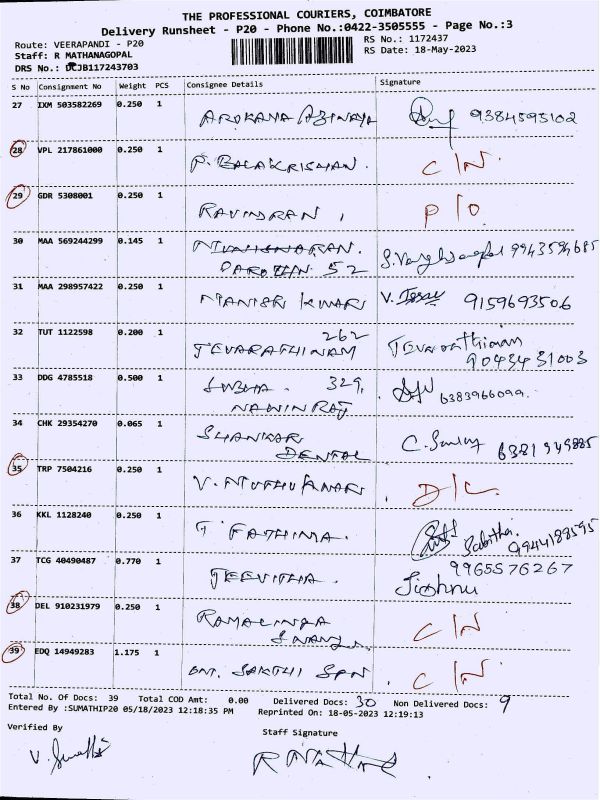 THE PROFESSIONAL COURIERS, COIMBATORE
Delivery Runsheet - P20 - Phone No.:0422-3505555 - Page No.:3
Route: VEERAPANDI - P20
RS No.: 1172437
Staff: R MATHANAGOPAL
RS Date: 18-May-2023
DRS No.: JB117243703
S No Consignment No Weight PCS Consignee Details Signature
27 IXM 503582269 0.250 1 9384595102
28 VPL 217861000 0.250 1 P. BALAKRISHAN. C/N.
29 GDR 5308001 0.250 1 RAVINDRAN, P/O
30 MAA 569244299 0.145 1
52
31 MAA 298957422 0.250 1 MANISH KUMARI V. 9159693506
32 TUT 1122598 0.200 1 262
JEVARATHINAM
9043431003
33 DDG 4785518 0.500 1 SUBHA. 329,
NAWIN RAJ 6383966099.
34 CHK 29354270 0.065 1 SHANKAR
DENTAL
35 TRP 7504216 0.250 1 V. MUTHUKUMARI. D/C.
36 KKL 1128240 0.250 1 T. FATHIMA. Sabitha.
9944188595
37 TCG 40490487 0.770 1 JEEVITHA. 9965576267
Jishnu
38 DEL 910231979 0.250 1 RAMALINGA
SWAMY. C/N
39 EDQ 14949283 1.175 1 OM. SAKTHI SPN C/N
Total No. Of Docs: 39 Total COD Amt: 0.00 Delivered Docs: 30 Non Delivered Docs: 9
Entered By :SUMATHIP20 05/18/2023 12:18:35 PM Reprinted On: 18-05-2023 12:19:13
Verified By
Staff Signature